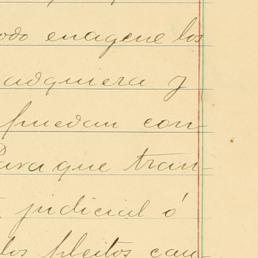 odo enagene los
adquiera y
puedan con
Para que tran-
judicial ó
los pleitos cau